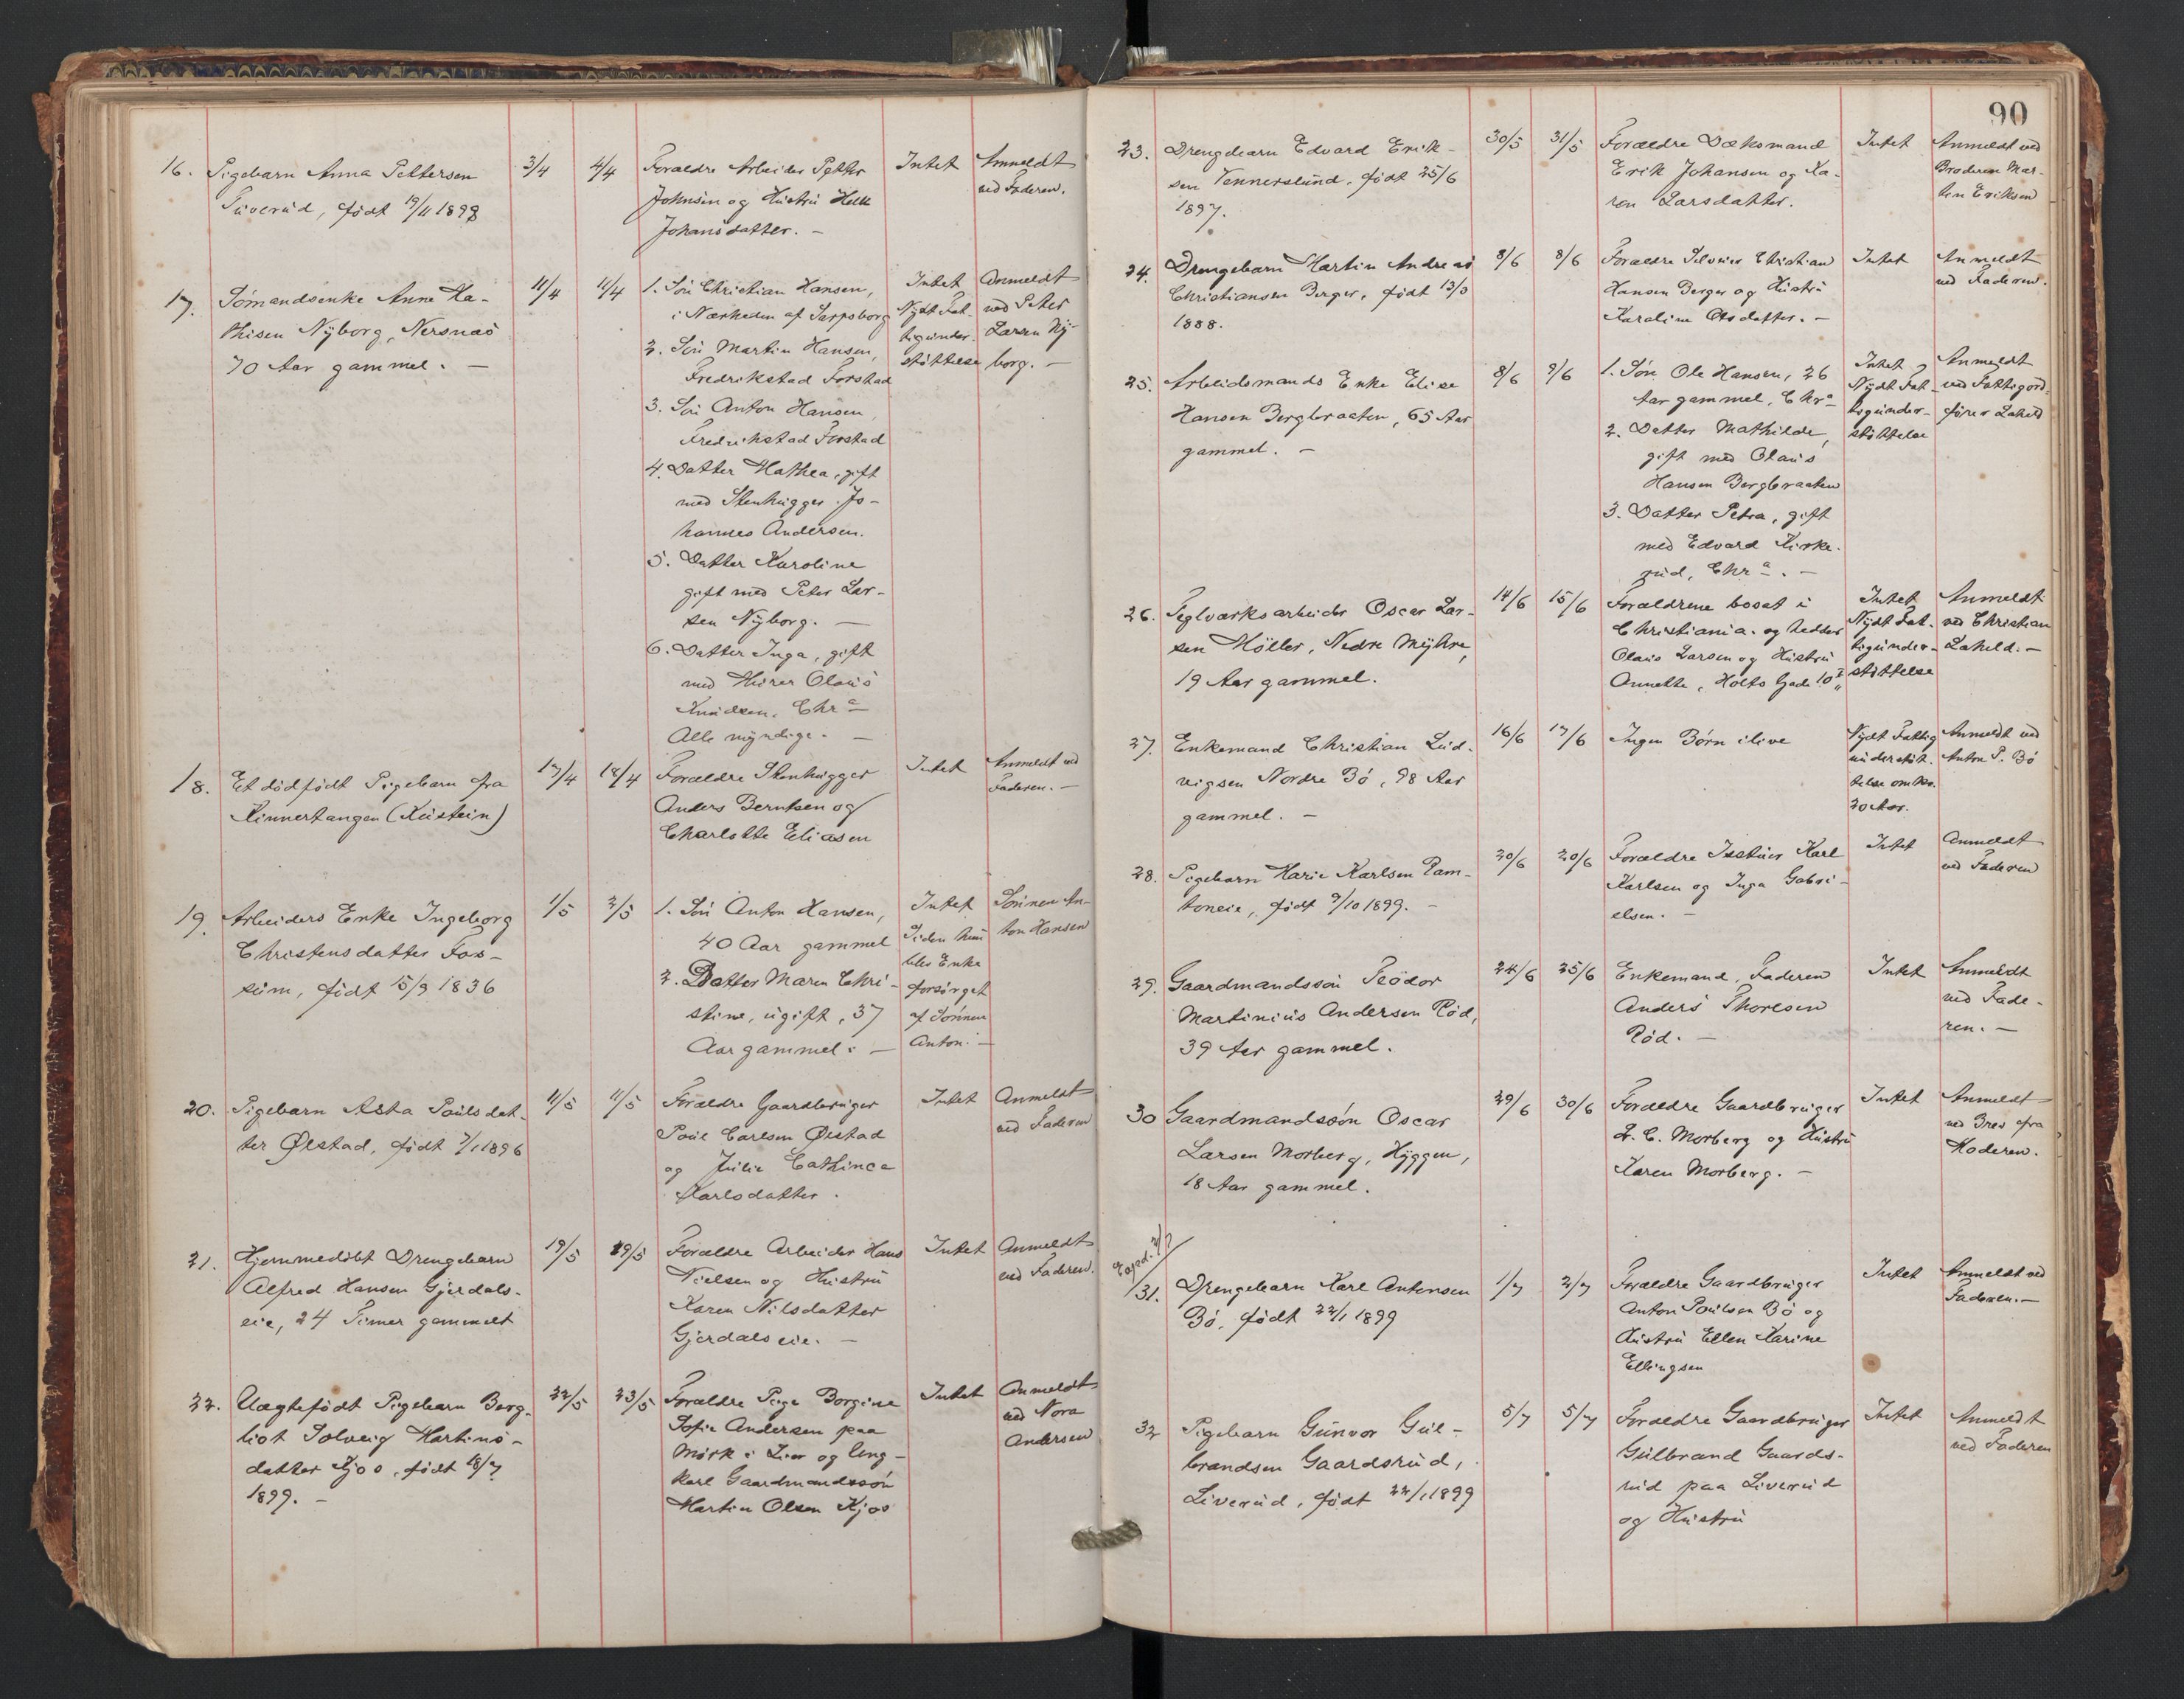 90
16. Pigebarn Anna Pettersen 3/4 4/4 Forældre Arbeider Petter Intet Anmeldt
Tuverud, født 19/11 1898 Johnsen og Hustru Helle ved Faderen.
Johansdatter. —
17. Sømandsenke Anne Ka- 11/4 11/4 1. Søn Christian Hansen, Intet Anmeldt
thisen Nyborg, Nersnæs i Nærheden af Sarpsborg Nydt Fat- ved Peter
70 Aar gammel. — 2. Søn Martin Hansen, tigunder- Larsen Ny-
Fredrikstad Forstad støttelse borg. —
3. Søn Anton Hansen,
Fredrikstad Forstad
4. Datter Mathea, gift
med Stenhugger Jo-
hannes Andersen.
5. Datter Karoline
gift med Peter Lar-
sen Nyborg. —
6. Datter Inga, gift
med Murer Olaus
Knudsen, Chr a
Alle myndige. —
18. Et dødfødt Pigebarn fra 17/4 18/4 Forældre Stenhugger Intet Anmeldt ved
Kinnertangen (Kustein) Anders Berntsen og Faderen. —
Charlotte Eliasen
19. Arbeiders Enke Ingeborg 1/5 2/5 1. Søn Anton Hansen, Intet Sønnen An-
Christensdatter Fos- 40 Aar gammel Siden hun ton Hansen
sum, født 15/9 1836 2. Datter Maren Chri- blev Enke
stine, ugift, 37 forsørget
Aar gammel. — af Sønnen
Anton. —
20. Pigebarn Asta Poulsdat- 11/5 11/5 Forældre Gaardbruger Intet Anmeldt
ter Ølstad, født 7/1 1896 Poul Carlsen Ølstad ved Faderen
og Julie Cathinca
Karlsdatter.
21. Hjemmedøbt Drengebarn 19/5 19/5 Forældre Arbeider Hans Intet Anmeldt
Alfred Hansen Gjerdals- Nielsen og Hustru ved Faderen.
eie, 24 Timer gammelt Karen Nilsdatter
Gjerdalseie. —
22. Uægtefødt Pigebarn Berg- 22/5 23/5 Forældre Pige Borgine Intet Anmeldt
liot Solveig Martins- Sofie Andersen paa ved Nora
datter Kjos, født 18/7 Mørk i Lier og Ung- Andersen
1899. — karl Gaardmandssøn
Martin Olsen Kjos
23. Drengebarn Edvard Erik- 30/5 31/5 Forældre Dæksmand Intet Anmeldt ved
sen Vennerslund, født 25/6 Erik Johansen og Ka- Broderen Mar-
1897. ren Larsdatter. tin Eriksen
24. Drengebarn Martin Andreas 8/6 8/6 Forældre Selveier Christian Intet Anmeldt
Christiansen Berger, født 13/3 Hansen Berger og Hustru ved Faderen.
1888. Karoline Olsdatter. —
25. Arbeidsmands Enke Elise 8/6 9/6 1. Søn Ole Hansen, 26 Intet Anmeldt
Hansen Bergbraaten, 65 Aar Aar gammel, Chr a Nydt Fat- ved Fattigord-
gammel. — 2. Datter Mathilde, tigunder- fører Laheld
gift med Olaus støttelse
Hansen Bergbraaten
3. Datter Petra, gift
med Edvard Kirke-
rud, Chr a. —
26. Teglværksarbeider Oscar Lar- 14/6 15/6 Forældrene bosat i Intet Anmeldt
sen Møller, Nedre Myhre, Christiania. og hedder Nydt Fat- ved Christian
19 Aar gammel. Olaus Larsen og Hustru tigunder- Laheld. —
Annette, Holts Gade 10 støttelse
27. Enkemand Christian Lud- 16/6 17/6 Ingen Børn ilive Nydt Fattig Anmeldt ved
vigsen Nordre Bø, 98 Aar understøt- Anton P. Bø
gammel. — telse omkr.
20 Aar.
28. Pigebarn Marie Karlsen Ram- 20/6 20/6 Forældre Karl Intet Anmeldt
toneie, født 9/10 1899. — Karlsen og Inga Gabri- ved Faderen
elsen. —
29. Gaardmandssøn Teodor 24/6 25/6 Enkemand, Faderen Intet Anmeldt
Martinius Andersen Rød, Anders Thoresen ved Fade-
39 Aar gammel. Rød. — ren. —
30 Gaardmandssøn Oscar 29/6 30/6 Forældre Gaardbruger Intet Anmeldt
Larsen Morberg, Hyggen, L. C. Morberg og Hustru ved Brev fra
18 Aar gammel. Karen Morberg. — Moderen.
Exped. 2/7
31. Drengebarn Karl Antonsen 1/7 2/7 Forældre Gaardbruger Intet Anmeldt ved
Bø, født 22/1 1899 Anton Poulsen Bø og Faderen. —
Hustru Ellen Karine
Ellingsen
32 Pigebarn Gunvor Gul- 5/7 5/7 Forældre Gaardbruger Intet Anmeldt
brandsen Gaardsrud, Gulbrand Gaards- ved Faderen
Liverud, født 22/1 1899 rud paa Liverud
og Hustru